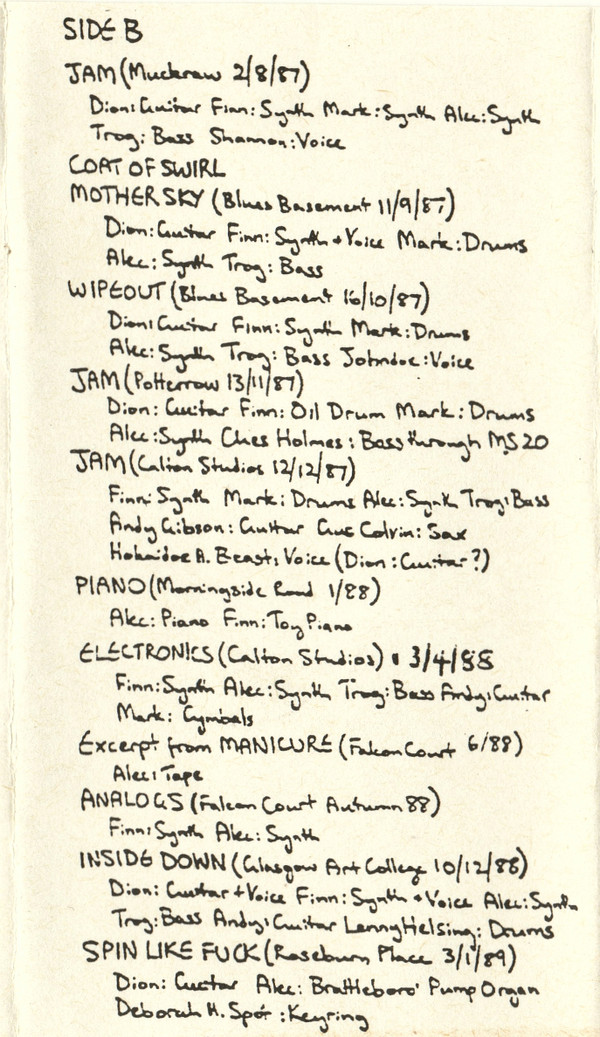 SIDE B
JAM (Muckraw 2/8/87)
Dion: Guitar Finn: Synth Mark: Synth Alec: Synth
Trog: Bass Shannon: Voice
COAT OF SWIRL
MOTHER SKY (Blues Basement 11/9/87)
Dion: Guitar Finn: Synth + Voice Mark: Drums
Alec: Synth Trog: Bass
WIPEOUT (Blues Basement 16/10/87)
Dion: Guitar Finn: Synth Mark: Drums
Alec: Synth Trog: Bass Johndoe: Voice
JAM (Potterrow 13/11/87)
Dion: Guitar Finn: Oil Drum Mark: Drums
Alec: Synth Ches Holmes: Bass through MS20
JAM (Calton Studios 12/12/87)
Finn: Synth Mark: Drums Alec: Synth Trog: Bass
Andy Gibson: Guitar Gus Colvin: Sax
A. Beast: Voice (Dion: Guitar?)
PIANO (Morningside Road 1/88)
Alec: Piano Finn: Toy Piano
ELECTRONICS (Calton Studios) 3/4/88
Finn: Synth Alec: Synth Trog: Bass Andy: Guitar
Mark: Cymbals
Excerpt from MANICURE (Falcon Court 6/88)
Alec: Tape
ANALOGS (Falcon Court Autumn 88)
Finn: Synth Alec: Synth
INSIDE DOWN (Glasgow Art College 10/12/88)
Dion: Guitar + Voice Finn: Synth + Voice Alec: Synth
Trog: Bass Andy: Guitar Lenny Helsing: Drums
SPIN LIKE FUCK (Roseburn Place 3/1/89)
Dion: Guitar Alec: 'Brattleboro' Pump Organ
Deborah H. Spór: Keyring